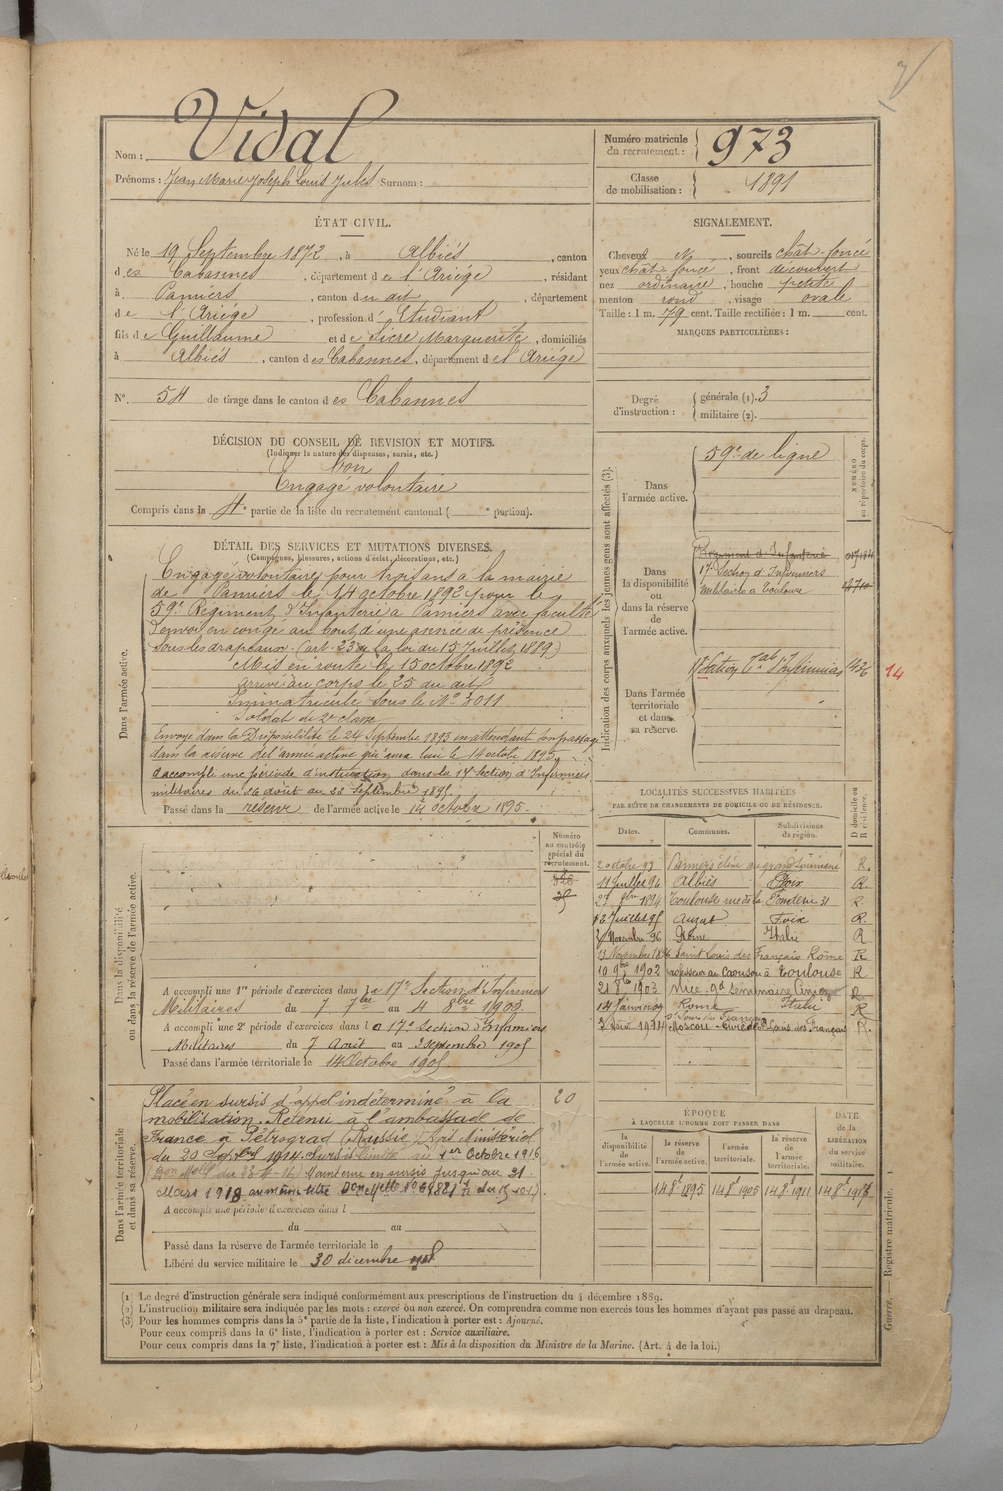 Vidal
Nom :
Prénoms : Jean Marie Joseph Louis Jules Surnom :
Numéro matricule du recrutement : 973
Classe de mobilisation : 1891
ÉTAT CIVIL.
Né le 19 Septembre 1872, à Albiés, canton
des Cabannes, département de l'Ariége, résidant
à Pamiers, canton du dit, département
de l'Ariége, profession d'Etudiant
fils de Guillaume et de Sicre Marguerite, domiciliés
à Albiés, canton des Cabannes, département de l'Ariége
N°. 54 de tirage dans le canton des Cabannes
SIGNALEMENT.
Cheveux N, sourcils chât-foncé
yeux chât-foncé, front découvert
nez ordinaire, bouche petite
menton rond, visage ovale
Taille : 1 m. 79 cent. Taille rectifiée : 1 m. cent.
MARQUES PARTICULIÈRES :
Degré d'instruction : générale (1). 3
militaire (2).
DÉCISION DU CONSEIL DE REVISION ET MOTIFS.
(Indiquer la nature des dispenses, sursis, etc.)
bon
Engagé volontaire
Compris dans la 4e partie de la liste du recrutement cantonal ( e portion).
DÉTAIL DES SERVICES ET MUTATIONS DIVERSES.
(Campagnes, blessures, actions d'éclat, décorations, etc.)
Dans l'armée active.
Engagé volontaire pour trois ans à la mairie
de Pamiers le 14 octobre 1892 pour le
59e Régiment d'Infanterie à Pamiers avec faculté
d'envoi en congé au bout d'une année de présence
sous les drapeaux. (art. 23 de la loi du 15 Juillet 1889)
Mis en route le 15 octobre 1892
arrivé au corps le 25 du dit
Immatriculé sous le No 3011
Soldat de 2e classe
Envoyé dans la Disponibilité le 24 Septembre 1893 en attendant son passage
dans la réserve de l'armée active qui aura lieu le 14 octobre 1895
a accompli une période d'instruction dans la 17e Section d'Infirmiers
militaires du 26 août au 22 Septembre 1895
Passé dans la réserve de l'armée active le 14 octobre 1895.
Indication des corps auxquels les jeunes gens sont affectés (3).
NUMÉRO au répertoire du corps.
Dans l'armée active.
59e de ligne
Dans la disponibilité ou dans la réserve de l'armée active.
Régiment d'Infanterie
17e Section d'Infirmiers
militaires à Toulouse
Dans l'armée territoriale et dans sa réserve.
17e Section Tale d'Infirmiers 426 14
LOCALITÉS SUCCESSIVES HABITÉES
PAR SUITE DE CHANGEMENTS DE DOMICILE OU DE RÉSIDENCE.
Dates. Communes. Subdivisions de région. D domicile ou R résidence.
2 octobre 93 Pamiers élève au grand séminaire R.
11 Juillet 94 Albiés Foix R.
1894 Toulouse rue de la Fonderie 31 R.
Juillet 95 Auzat Foix R.
Novembre 96 Rome Italie R
Novembre 1896 Saint Louis des Français Rome R
10 9bre 1902 professeur au Caousou à Toulouse R
21 8bre 1903 R
14 Janvier Rome Italie R
St Louis des Français
1914 Moscou St Louis des Français R.
Dans la disponibilité ou dans la réserve de l'armée active.
Numéro au contrôle spécial du recrutement.
A accompli une 1re période d'exercices dans la 17e Section d'Infirmiers
Militaires du 7 7bre au 4 8bre 1903.
A accompli une 2e période d'exercices dans la 17e Section d'Infirmiers
Militaires du 7 Août au 3 septembre 1905
Passé dans l'armée territoriale le 14 Octobre 1905
Dans l'armée territoriale et dans sa réserve.
Placé en sursis d'appel indéterminé à la 20
mobilisation. Retenu à l'ambassade de
France à Pétrograd (Russie)
du 20 1914. Sursis limité au 1er Octobre 1916
Maintenu en sursis jusqu'au 31
Mars 1918 au même titre
A accompli une période d'exercices dans l
du au
Passé dans la réserve de l'armée territoriale le
Libéré du service militaire le 30 décembre
ÉPOQUE
À LAQUELLE L'HOMME DOIT PASSER DANS
la disponibilité de l'armée active. la réserve de l'armée active. l'armée territoriale. la réserve de l'armée territoriale. DATE de la LIBÉRATION du service militaire.
14 8bre 1895 14 8bre 1905 14 8bre 1911 14 8bre 1917
(1) Le degré d'instruction générale sera indiqué conformément aux prescriptions de l'instruction du 4 décembre 1889.
(2) L'instruction militaire sera indiquée par les mots : exercé ou non exercé. On comprendra comme non exercés tous les hommes n'ayant pas passé au drapeau.
(3) Pour les hommes compris dans la 5e partie de la liste, l'indication à porter est : Ajourné.
Pour ceux compris dans la 6e liste, l'indication à porter est : Service auxiliaire.
Pour ceux compris dans la 7e liste, l'indication à porter est : Mis à la disposition du Ministre de la Marine. (Art. 4 de la loi.)
Guerre. — Registre matricule.